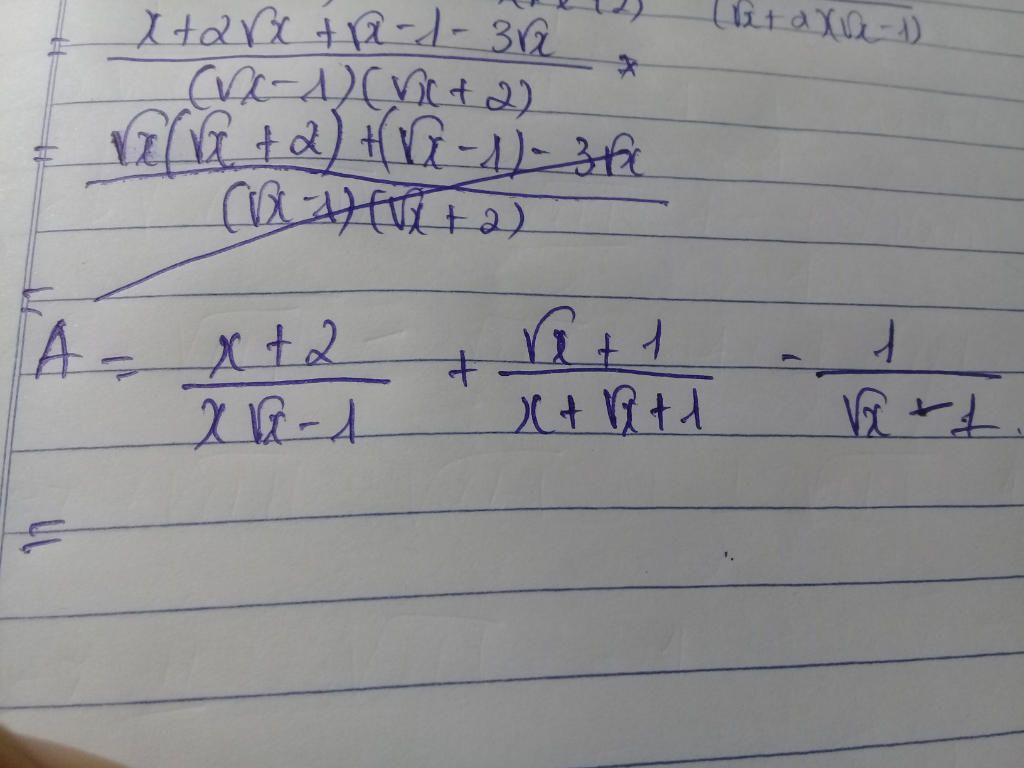 (√x + 2)(√x - 1)
= x + 2√x + √x - 1 - 3√x / (√x - 1)(√x + 2) *
= √x(√x + 2) + (√x - 1) - 3√x / (√x - 1)(√x + 2)
=
A = x + 2 / x√x - 1 + √x + 1 / x + √x + 1 - 1 / √x - 1.
=